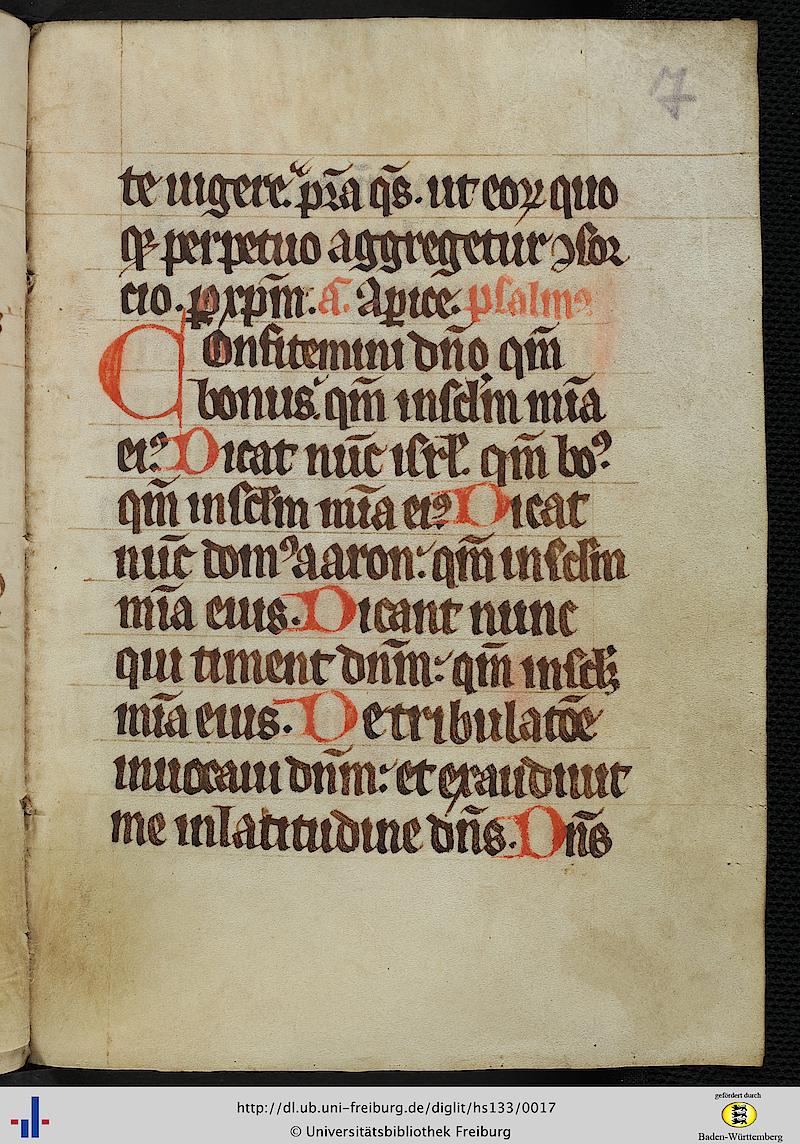 7
te uigere. p̄ra q̄s. ut eoꝝ quo
qꝫ perpetuo aggregetur ꝯsor
cio. ꝑ xp̄m. a᷑. Aꝑite. psalmꝰ
Confitemini dn̄o qm̄
bonus. qm̄ insclm̄ mīa
eiꝰ. Dicat nūc isrl̄. qm̄ boꝰ
qm̄ insclm̄ mīa eiꝰ Dicat
nūc domꝰ aaron: qm̄ insclm̄
mīa eius. Dicant nunc
qui timent dn̄m: qm̄ insclꝫ
mīa eius. De tribulatōe
inuocaui dn̄m: et exaudiuit
me inlatitudine dn̄s. Dn̄s
http://dl.ub.uni-freiburg.de/diglit/hs133/0017
© Universitätsbibliothek Freiburg
gefördert durch
Baden-Württemberg